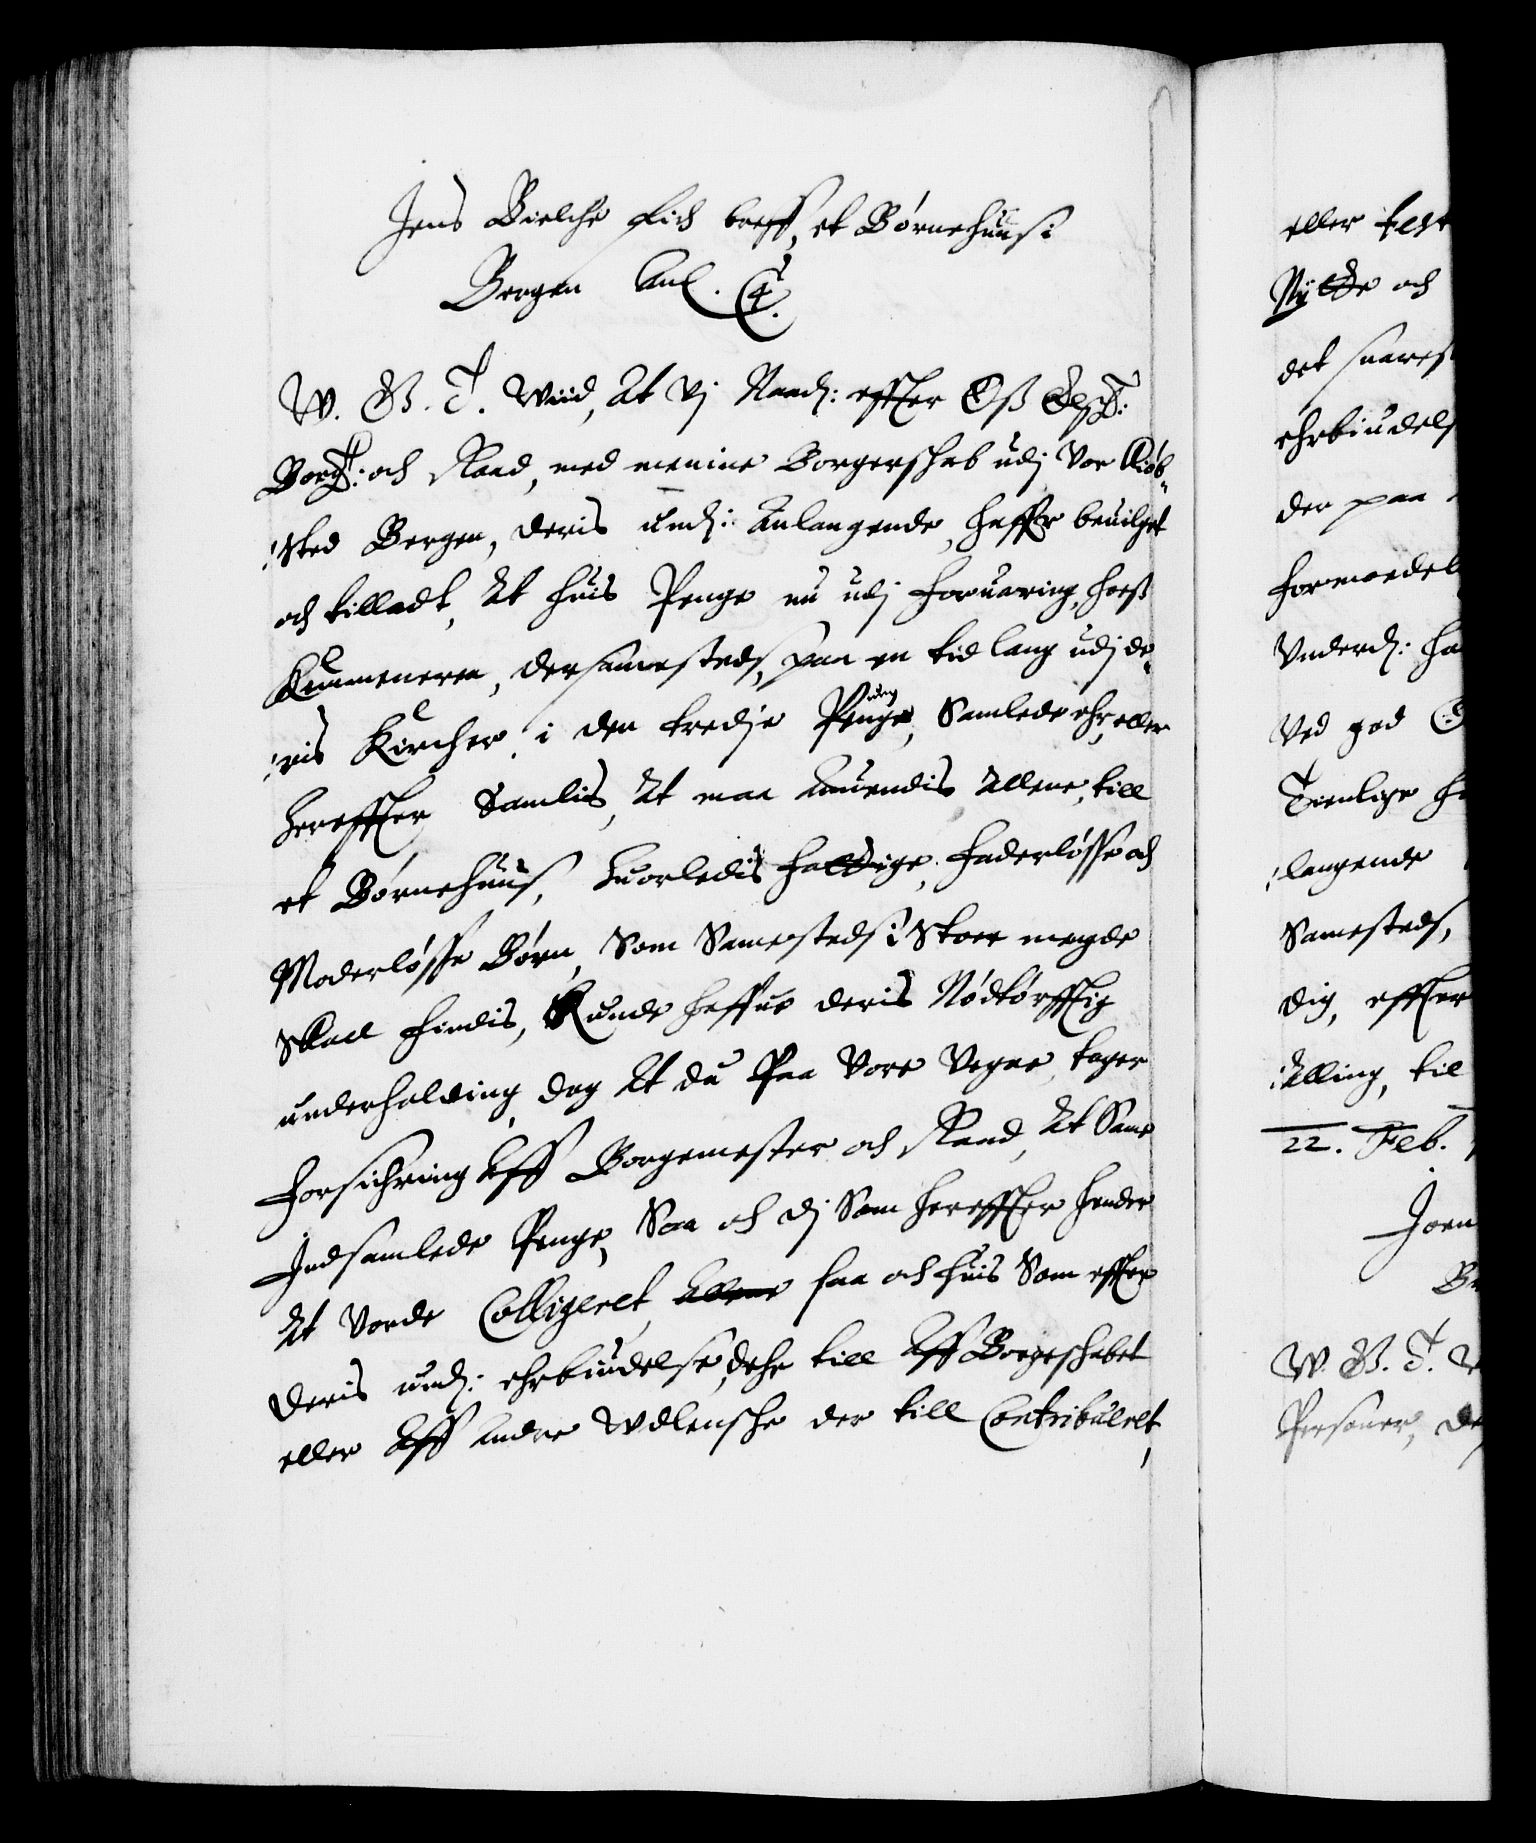 Jens Bielche fich breff, et Børnehuus i
Bergen Anl.
W. G. T. Wiid, At Vj Naad: effter Oß Elsk:
Borg: och Raad, med menine Borgerschab udj Vor Kiøb-
sted Bergen, deris Und: Anlangende, haffer beuilget
och tilladt, At huis Penge nu udj foruaring, hoeß
Kemmeneren, dersamesteds, paa en tid lang udj de-
ris Kircher i den tredje Pung, Samlede ehr, eller
hereffter Samlis, At maa Anuendis Allene, till
et Børnehuus, huorledis fattige, faderløsse och
Moderløsse Børn, Som Samesteds i Stoer megde
Skall findis, Kunde haffue deris Nødtørfftig
underholding, dog At du Paa Vore Vegne, tager
forsichring Aff Borgemester och Raad, At Same
Indsamlede Penge, Saa och dj Som hereffter hender
At Vorde Colligeret, saa och huis Som effter
deris und: ehrbiudelse, dehr till Aff Borgerschabet
eller Aff Andre Wdlensche der till Contribueret,
eller
Nytte och
det suarest
ehrbiudels
der paa
formoedel
Underd: ha
Ved god
Tienlige
langende
Samesteds,
dig, effter
Alling, til
22. Feb.
Joen
W. G. T.
Personer, de